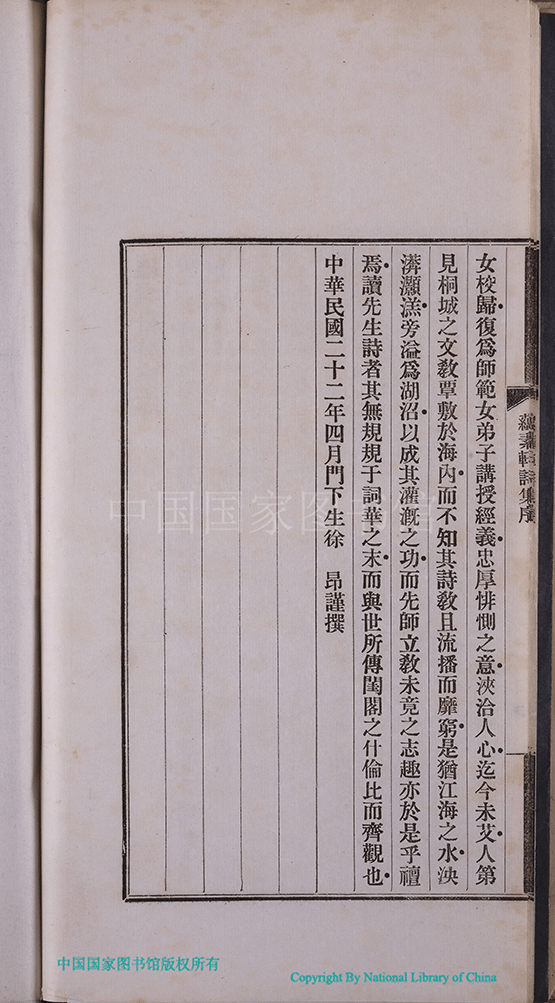 蘊素軒詩集序
女校歸復爲師範女弟子講授經義忠厚悱惻之意浹洽人心迄今未艾人第
見桐城之文敎覃敷於海內而不知其詩敎且流播而靡窮是猶江海之水泱
漭灝溔旁溢爲湖沼以成其灌漑之功而先師立敎未竟之志趣亦於是乎禮
焉讀先生詩者其無規規于詞華之末而與世所傳閨閣之什倫比而齊觀也
中華民國二十二年四月門下生徐　昂謹撰
中国国家图书馆
中国国家图书馆版权所有
Copyright By National Library of China